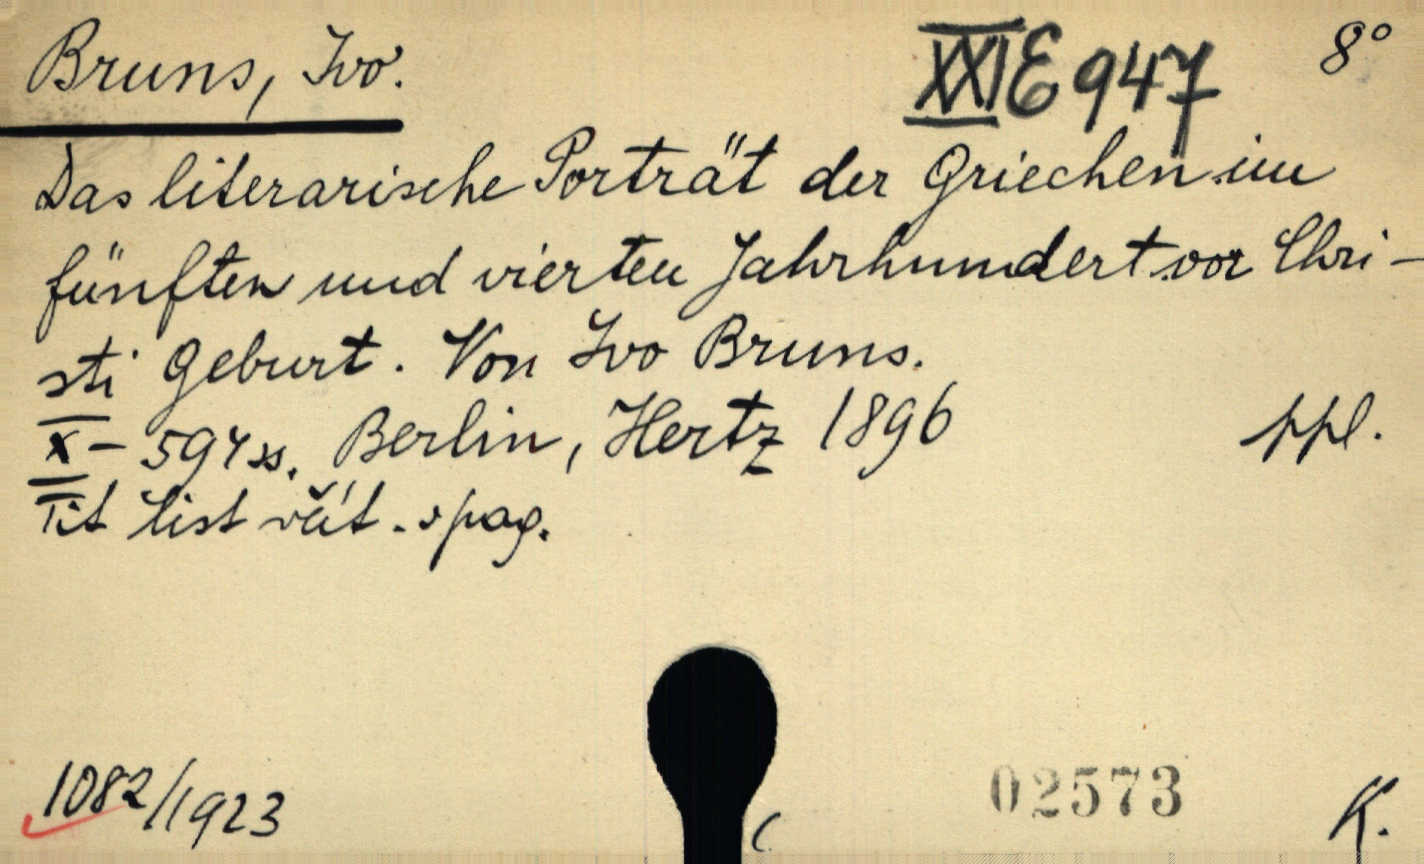 Bruns, Ivo. XXI E 947 8°
Das literarische Porträt der Griechen im
fünften und vierten Jahrhundert vor Chri-
sti Geburt. Von Ivo Bruns.
X - 594 ss. Berlin, Hertz 1896 ppl.
Tit list včít. v pag.
1082/1923 02573 K.